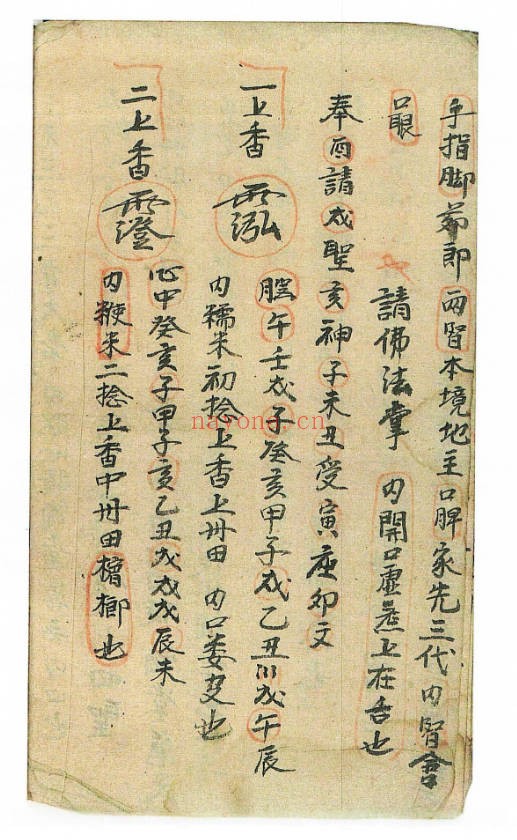 手指脚茆郎 兩腎本境地主口脾家先三代内腎舍
口眼 請佛法掌 内開口虛 上在舌也
奉酉請戌聖亥神子未丑受寅座卯文
一上香 泓 膛午壬戌子癸亥甲子戌乙丑 戌午辰
内糯米初捻上香上卅田 内口娄 也
二上香 澄 心中癸亥子甲子亥乙丑戌戌戌辰未
内粳米二捻上香中卅田檳榔也
nayong.cn